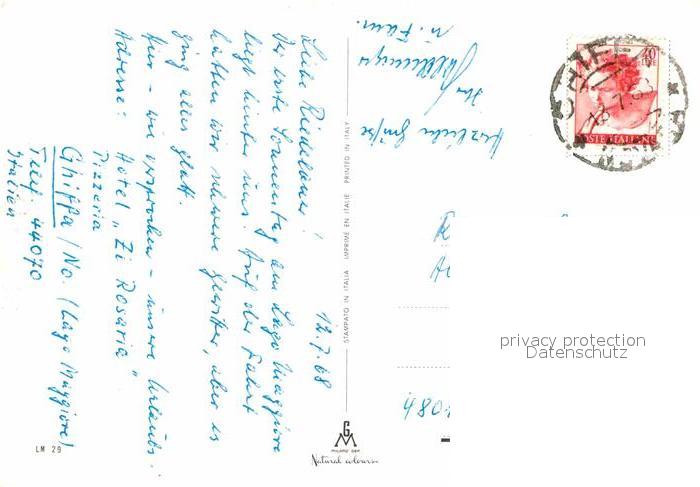 12.7.68
Liebe Riedelauer!
Der erste Sonnentag am Lago Maggiore
liegt hinter uns. Auf der Fahrt
hatten wir schwere Gewitter, aber es
ging alles glatt.
Hier - wie versprochen - unsere Urlaubs-
Adresse: Hotel „Zi Rosaria"
Pizzeria
Ghiffa / No. (Lago Maggiore)
Telef. 44070
Italien
Herzliche Grüße
Ihr
u. Fam.
STAMPATO IN ITALIA IMPRIMÉ EN ITALIE PRINTED IN ITALY
40
LIRE
POSTE ITALIANE
privacy protection
Datenschutz
LM 29
GM
Natural colours